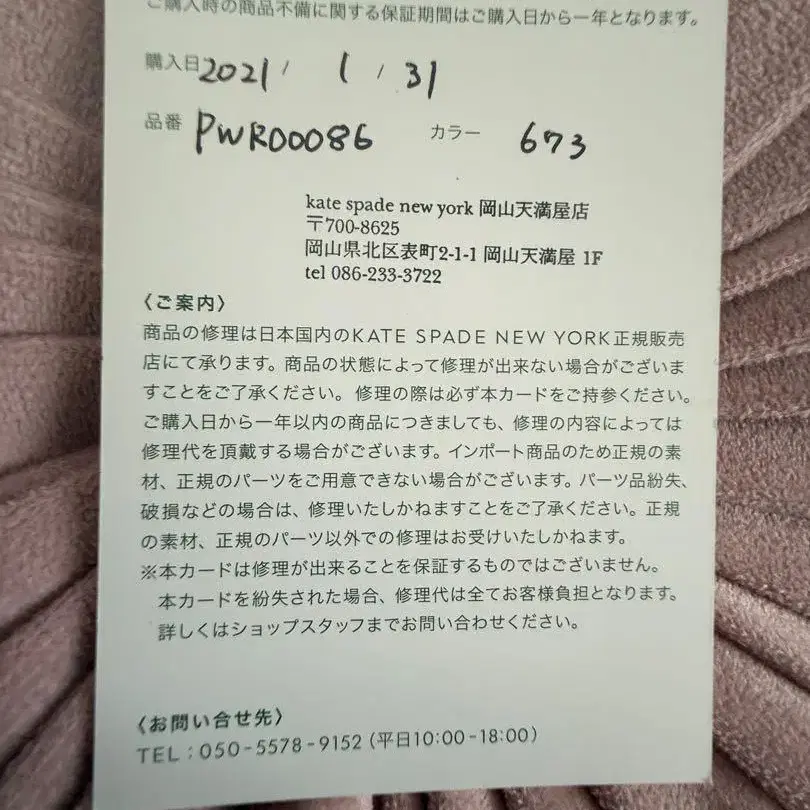 ご購入時の商品不備に関する保証期間はご購入日から一年となります。
購入日 2021 / 1 / 31
品番 PWR00086 カラー 673
kate spade new york 岡山天満屋店
〒700-8625
岡山県北区表町2-1-1 岡山天満屋 1F
tel 086-233-3722
〈ご案内〉
商品の修理は日本国内のKATE SPADE NEW YORK正規販売
店にて承ります。商品の状態によって修理が出来ない場合がございま
すことをご了承ください。修理の際は必ず本カードをご持参ください。
ご購入日から一年以内の商品につきましても、修理の内容によっては
修理代を頂戴する場合がございます。インポート商品のため正規の素
材、正規のパーツをご用意できない場合がございます。パーツ品紛失、
破損などの場合は、修理いたしかねますことをご了承ください。正規
の素材、正規のパーツ以外での修理はお受けいたしかねます。
※本カードは修理が出来ることを保証するものではございません。
本カードを紛失された場合、修理代は全てお客様負担となります。
詳しくはショップスタッフまでお問い合わせください。
〈お問い合せ先〉
TEL：050-5578-9152（平日10:00-18:00）